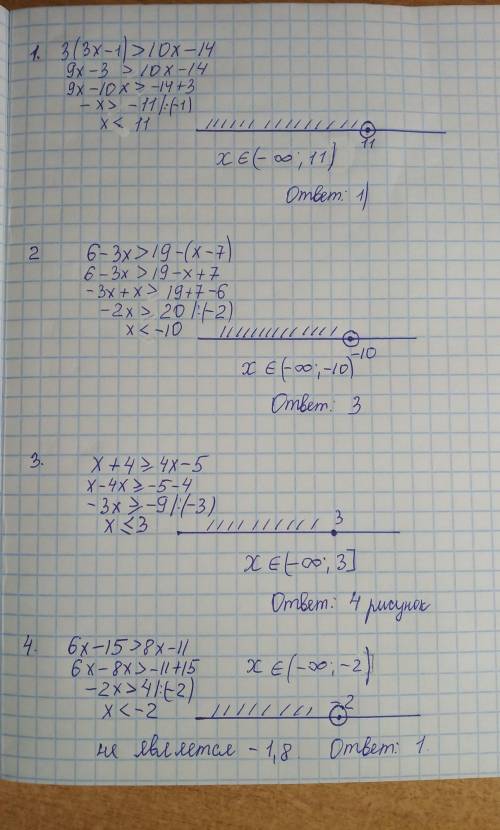 1. 3(3x-1)>10x-14
9x-3 > 10x-14
9x-10x>-14+3
-x> -11|:(-1)
x< 11
11
x∈(-∞; 11)
Ответ: 1)
2 6-3x>19-(x-7)
6-3x>19-x+7
-3x+x> 19+7-6
-2x> 20|:(-2)
x<-10
-10
x∈(-∞;-10)
Ответ: 3
3. x+4⩾4x-5
x-4x⩾-5-4
-3x⩾-9|:(-3)
x⩽3
3
x∈(-∞; 3]
Ответ: 4 рисунок
4. 6x-15>8x-11
6x-8x>-11+15
x∈(-∞;-2)
-2x>4|:(-2)
x<-2
-2
не является -1,8. Ответ: 1.